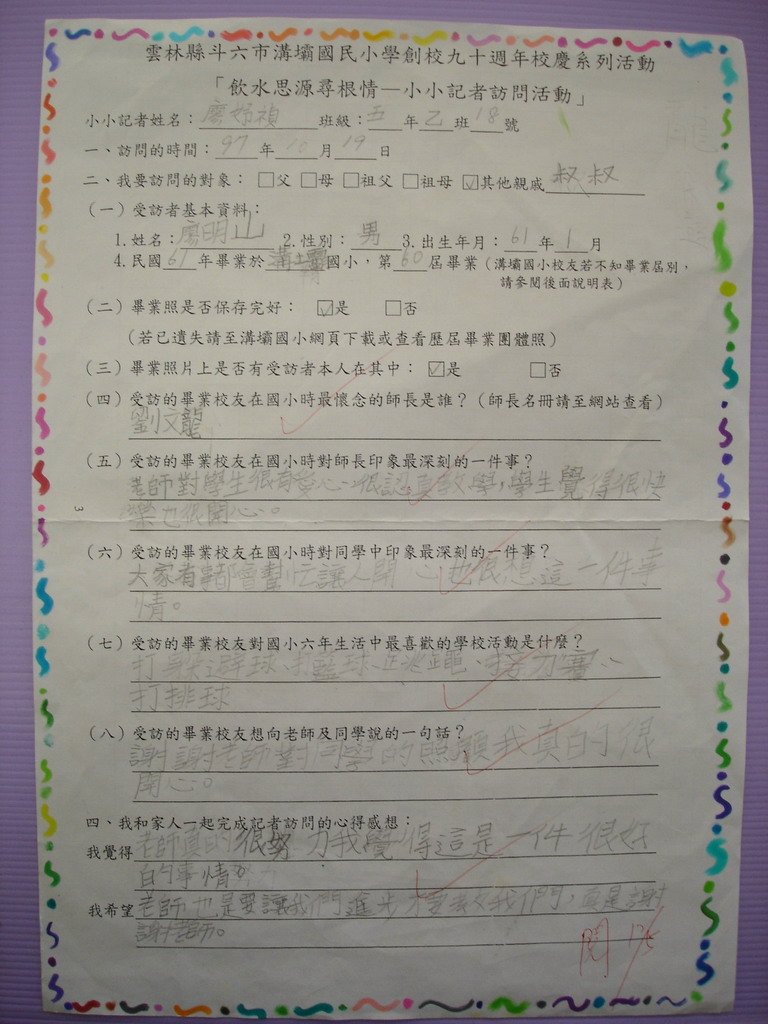 雲林縣斗六市溝壩國民小學創校九十週年校慶系列活動
「飲水思源尋根情—小小記者訪問活動」
小小記者姓名：廖 禎 班級：五 年 乙 班 18 號
一、訪問的時間：97 年 10 月 19 日
二、我要訪問的對象：□父 □母 □祖父 □祖母 ☑其他親戚 叔叔
（一）受訪者基本資料：
1.姓名：廖明山 2.性別：男 3.出生年月：61 年 1 月
4.民國 61 年畢業於 溝壩 國小，第 60 屆畢業（溝壩國小校友若不知畢業屆別，
請參閱後面說明表）
（二）畢業照是否保存完好：☑是 □否
（若已遺失請至溝壩國小網頁下載或查看歷屆畢業團體照）
（三）畢業照片上是否有受訪者本人在其中：☑是 □否
（四）受訪的畢業校友在國小時最懷念的師長是誰？（師長名冊請至網站查看）
劉文龍
（五）受訪的畢業校友在國小時對師長印象最深刻的一件事？
老師對學生很有愛心、很認真教學，學生覺得很快
樂也很開心。
（六）受訪的畢業校友在國小時對同學中印象最深刻的一件事？
大家有事都會幫忙讓人開心也很想這一件事
情。
（七）受訪的畢業校友對國小六年生活中最喜歡的學校活動是什麼？
打躲避球、打籃球、跳繩、接力賽、
打排球
（八）受訪的畢業校友想向老師及同學說的一句話？
謝謝老師對同學的照顧我真的很
開心。
四、我和家人一起完成記者訪問的心得感想：
我覺得 老師真的很努力我覺得這是一件很好
的事情
我希望 老師也是要讓我們進步才要教我們，真是謝
謝老師。
閱 12/5
3